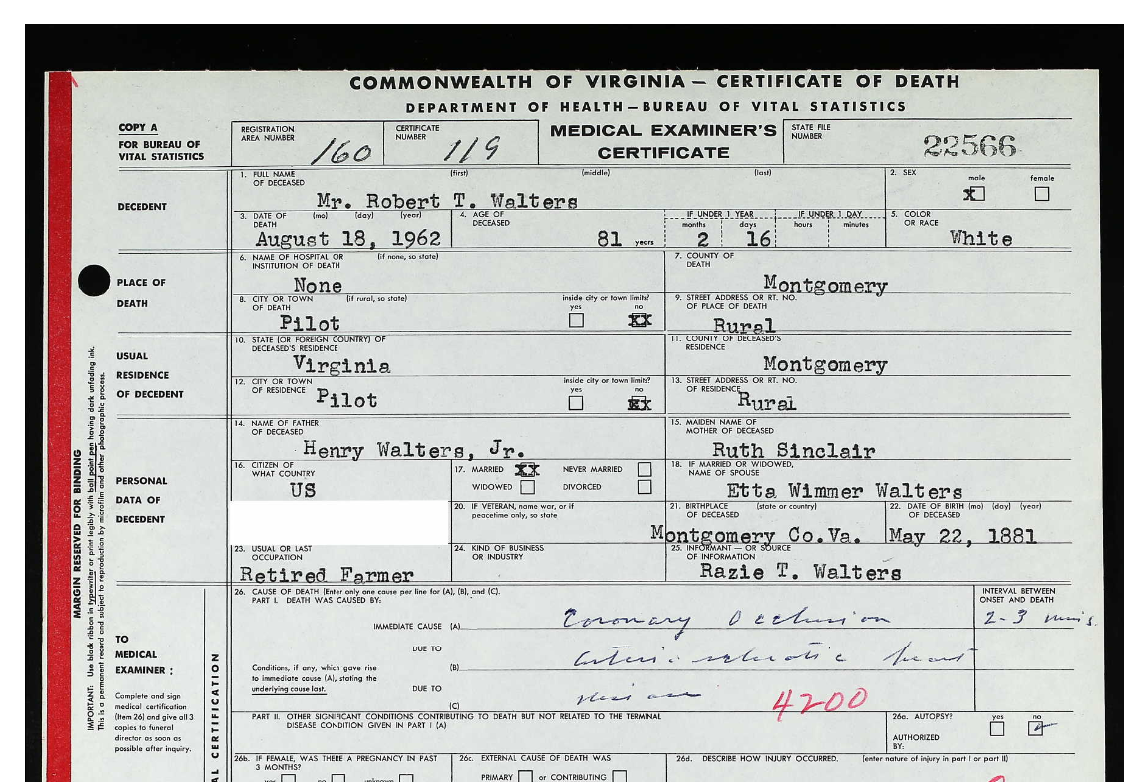 COMMONWEALTH OF VIRGINIA — CERTIFICATE OF DEATH
DEPARTMENT OF HEALTH—BUREAU OF VITAL STATISTICS
COPY A
FOR BUREAU OF
VITAL STATISTICS
REGISTRATION
AREA NUMBER
160
CERTIFICATE
NUMBER
119
MEDICAL EXAMINER'S
CERTIFICATE
STATE FILE
NUMBER
22566
DECEDENT
1. FULL NAME (first) (middle) (last)
OF DECEASED
Mr. Robert T. Walters
2. SEX
male female
X
3. DATE OF (mo) (day) (year)
DEATH
August 18, 1962
4. AGE OF
DECEASED
81 years
IF UNDER 1 YEAR IF UNDER 1 DAY
months days hours minutes
2 16
5. COLOR
OR RACE
White
PLACE OF
DEATH
6. NAME OF HOSPITAL OR (if none, so state)
INSTITUTION OF DEATH
None
7. COUNTY OF
DEATH
Montgomery
8. CITY OR TOWN (if rural, so state)
OF DEATH
Pilot
inside city or town limits?
yes no
XX
9. STREET ADDRESS OR RT. NO.
OF PLACE OF DEATH
Rural
USUAL
RESIDENCE
OF DECEDENT
10. STATE (OR FOREIGN COUNTRY) OF
DECEASED'S RESIDENCE
Virginia
11. COUNTY OF DECEASED'S
RESIDENCE
Montgomery
12. CITY OR TOWN
OF RESIDENCE
Pilot
inside city or town limits?
yes no
XX
13. STREET ADDRESS OR RT. NO.
OF RESIDENCE
Rural
PERSONAL
DATA OF
DECEDENT
14. NAME OF FATHER
OF DECEASED
Henry Walters, Jr.
15. MAIDEN NAME OF
MOTHER OF DECEASED
Ruth Sinclair
16. CITIZEN OF
WHAT COUNTRY
US
17. MARRIED XX NEVER MARRIED
WIDOWED DIVORCED
18. IF MARRIED OR WIDOWED,
NAME OF SPOUSE
Etta Wimmer Walters
20. IF VETERAN, name war, or if
peacetime only, so state
21. BIRTHPLACE (state or country)
OF DECEASED
Montgomery Co.Va.
22. DATE OF BIRTH (mo) (day) (year)
OF DECEASED
May 22, 1881
23. USUAL OR LAST
OCCUPATION
Retired Farmer
24. KIND OF BUSINESS
OR INDUSTRY
25. INFORMANT — OR SOURCE
OF INFORMATION
Razie T. Walters
MARGIN RESERVED FOR BINDING
IMPORTANT: Use black ribbon in typewriter or print legibly with ball point pen having dark unfading ink.
This is a permanent record and subject to reproduction by microfilm and other photographic process.
TO
MEDICAL
EXAMINER :
Complete and sign
medical certification
(Item 26) and give all 3
copies to funeral
director as soon as
possible after inquiry.
AL CERTIFICATION
26. CAUSE OF DEATH (Enter only one cause per line for (A), (B), and (C).
PART I. DEATH WAS CAUSED BY:
INTERVAL BETWEEN
ONSET AND DEATH
IMMEDIATE CAUSE (A) Coronary Occlusion 2-3 mins.
DUE TO
Conditions, if any, which gave rise
to immediate cause (A), stating the
underlying cause last.
(B) Arteriosclerotic heart
DUE TO
(C) disease
4200
PART II. OTHER SIGNIFICANT CONDITIONS CONTRIBUTING TO DEATH BUT NOT RELATED TO THE TERMINAL
DISEASE CONDITION GIVEN IN PART I (A)
26a. AUTOPSY? yes no
AUTHORIZED
BY:
26b. IF FEMALE, WAS THERE A PREGNANCY IN PAST
3 MONTHS?
yes no unknown
26c. EXTERNAL CAUSE OF DEATH WAS
PRIMARY or CONTRIBUTING
26d. DESCRIBE HOW INJURY OCCURRED. (enter nature of injury in part I or part II)